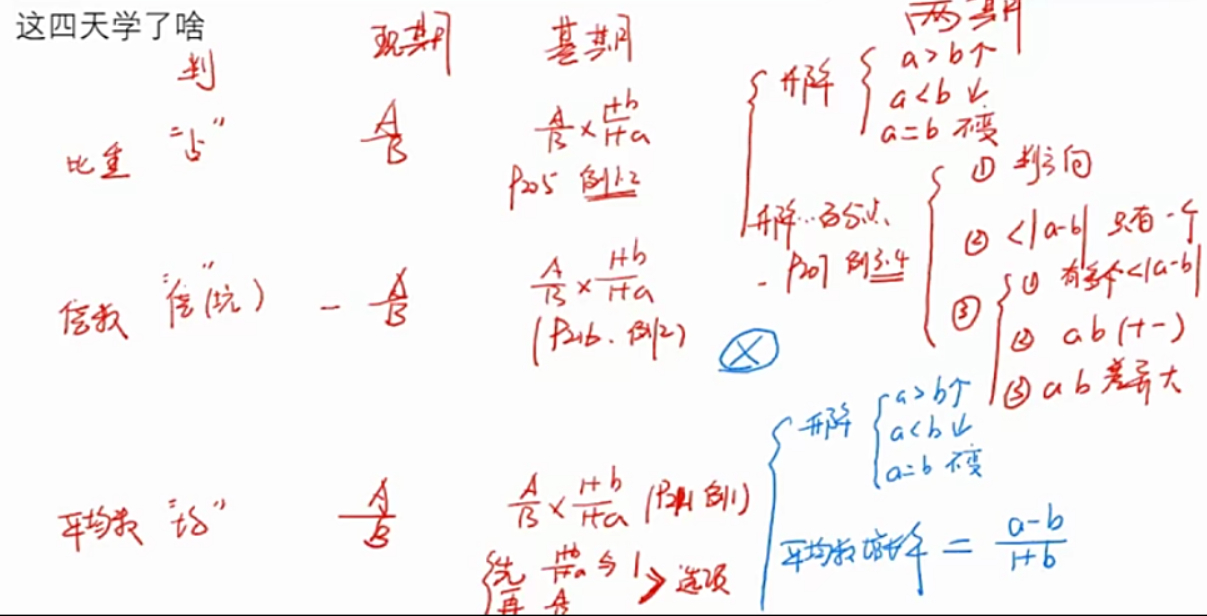 这四天学了啥
判 现期 基期 两期
比重 "占" A/B A/B × 1+b/1+a
P205 例1.2
升降 { a>b↑
a<b↓
a=b 不变
升降…百分点
P207 例3.4
① 判方向
② <|a-b| 只有一个
③ { ① 有多个<|a-b|
② ab (+-)
③ ab 差异大
倍数 "倍"(坑) - A/B A/B × 1+b/1+a
(P216. 例2)
X
平均数 "均" A/B A/B × 1+b/1+a
例1)
先 1+b/1+a 与 1 > 选项
再 A/B
升降 { a>b↑
a<b↓
a=b 不变
平均数增长率 = a-b/1+b